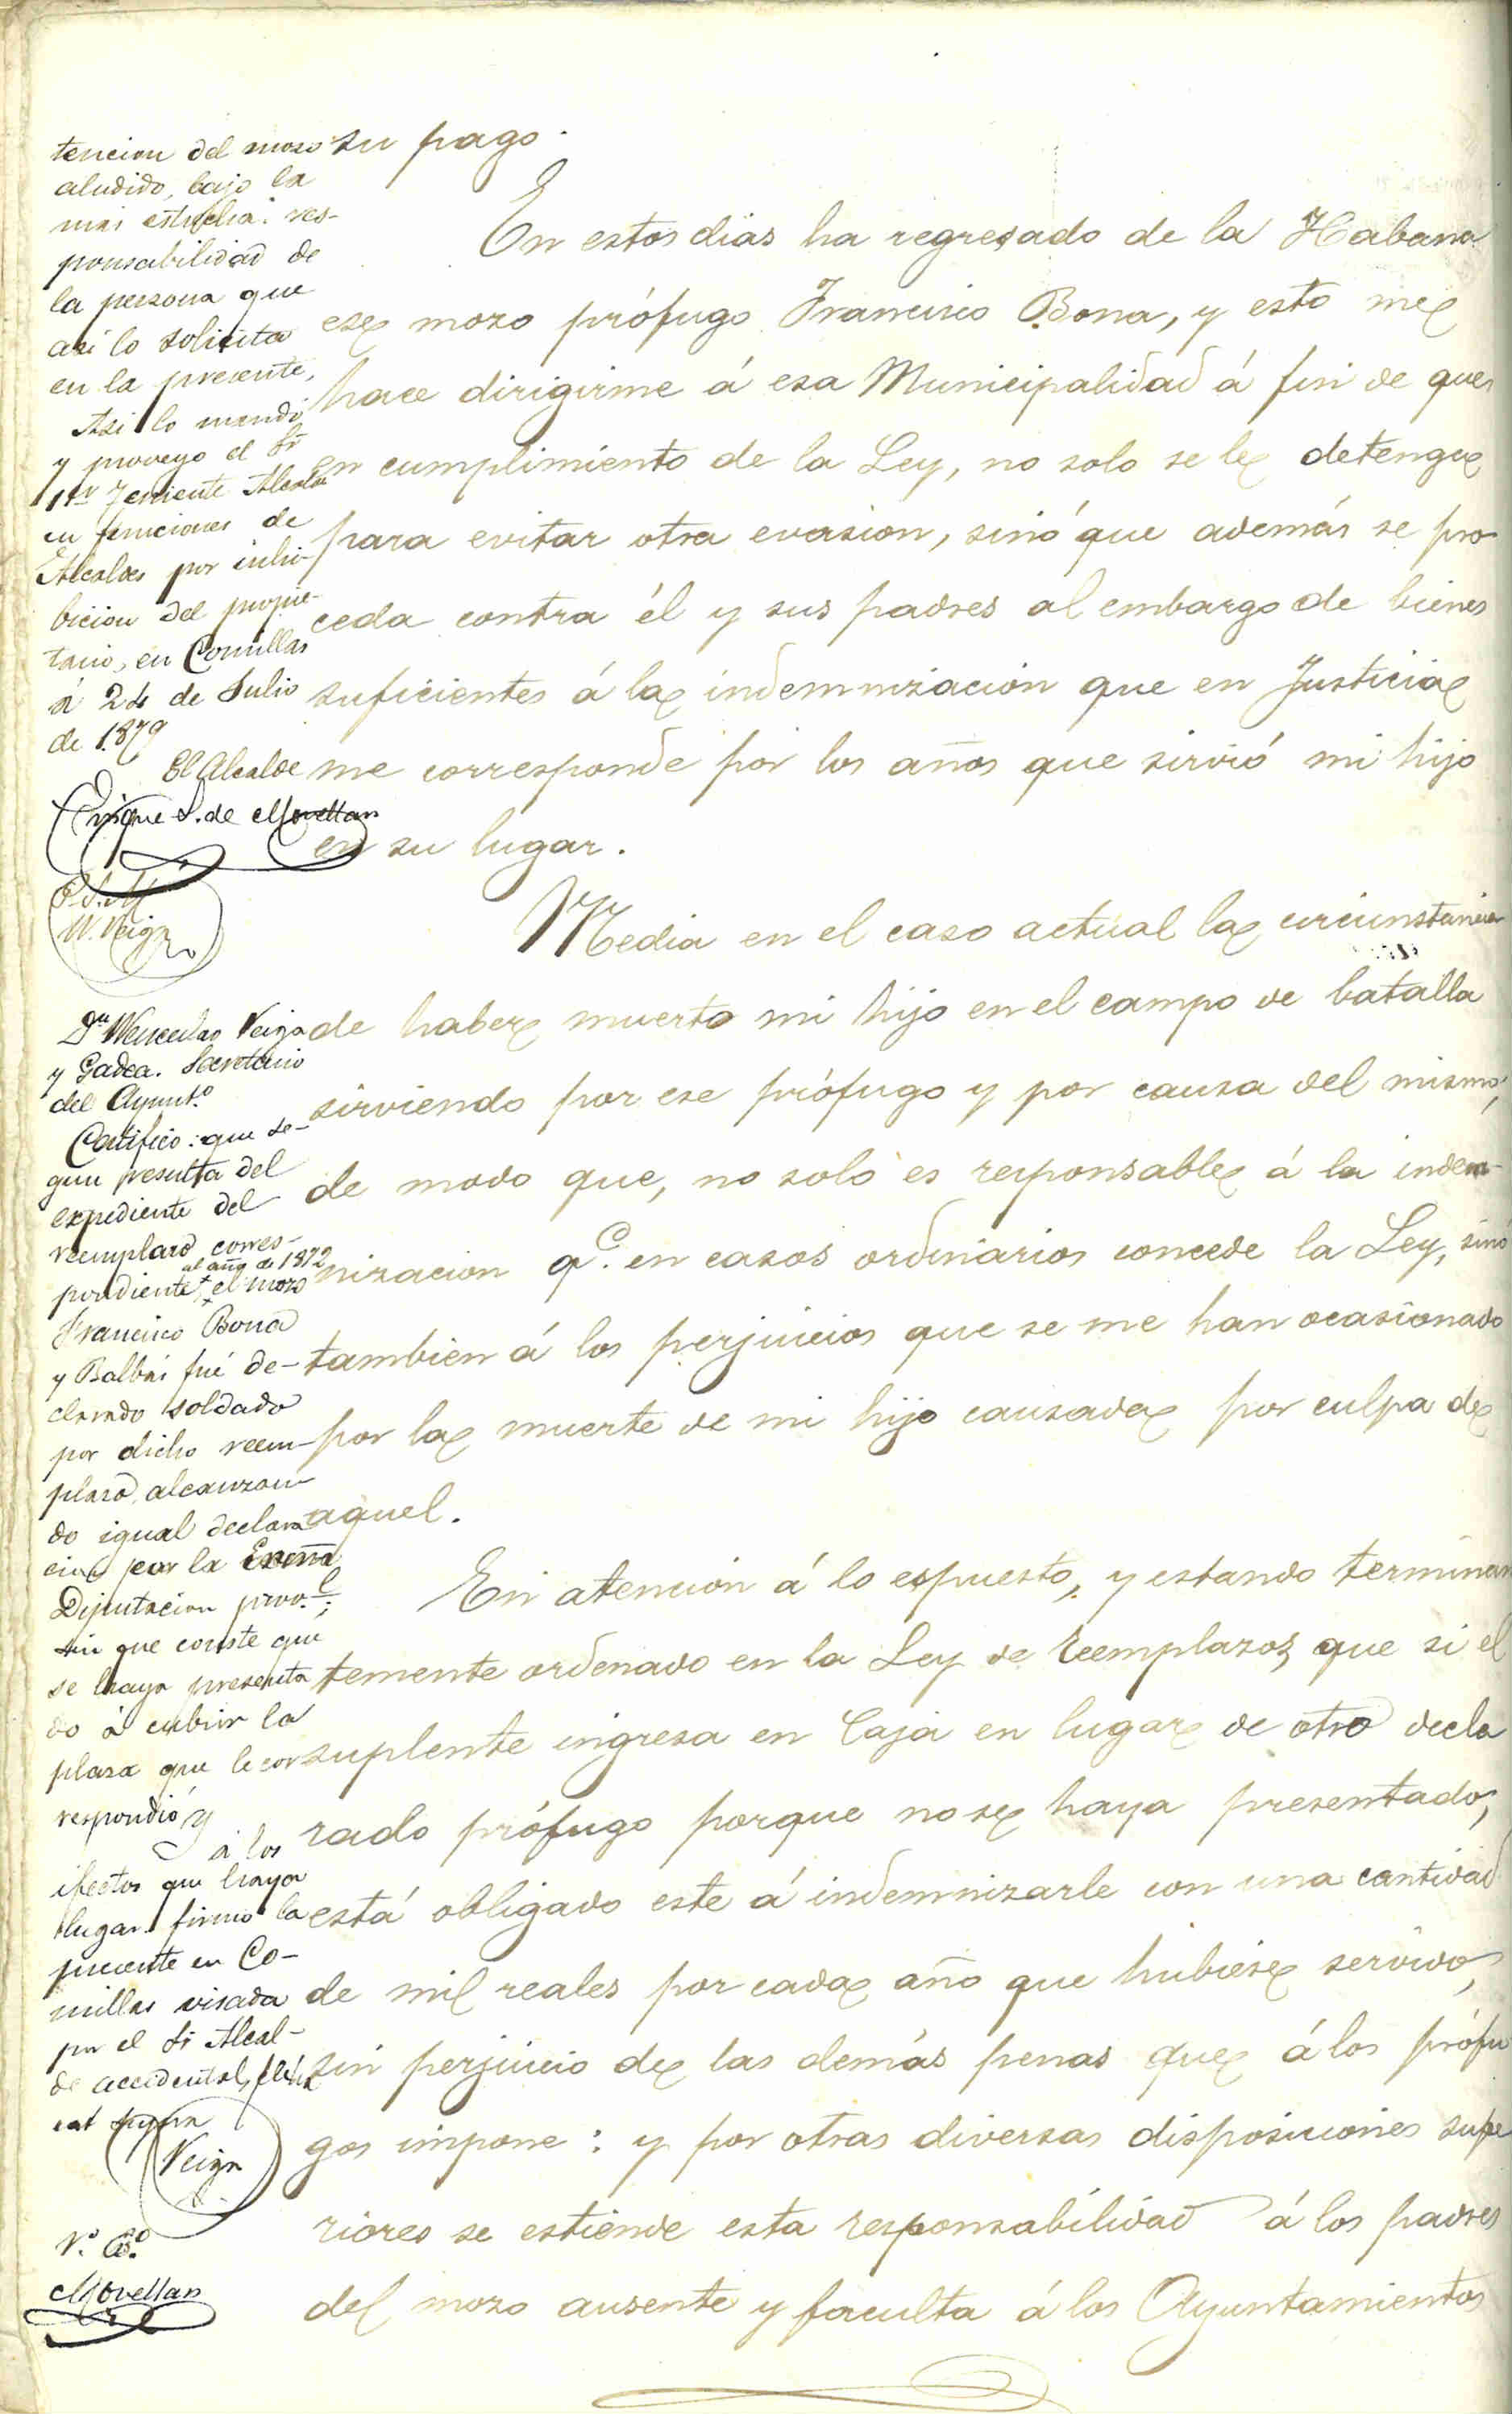 tencion del mozo
aludido, bajo la
mas estrecha res-
ponsabilidad de
la persona que
asi lo solicita
en la presente,
Asi lo mandó
y proveyo el Sr
1er Teniente Alcalde
en funciones de
Alcalde, por inhi-
bicion del propie-
tario, en Comillas
á 24 de Julio
de 1879
El Alcalde
Enrique S. de Movellan
P.S.M.
W. Veiga
Dn Wenceslao Veiga
y Gadea. Secretario
del Ayunto.
Certifico: que se-
gun resulta del
expediente del
reemplazo corres-
al año de 1872
pondiente + el mozo
Francisco Bona
y Balbás fué de-
clarado soldado
por dicho reem-
plazo, alcanzan-
do igual declara
cion por la Excma
Diputacion provl.;
sin que conste que
se haya presenta
do á cubrir la
plaza que le cor
respondió y
á los
efectos que haya
lugar firmo la
presente en Co-
millas visada
por el Sr Alcal-
de accidental, fecha
ut supra
Veiga
Vo. Bo.
Movellan
su pago.
En estos dias ha regresado de la Habana
ese mozo prófugo Francisco Bona, y esto me
hace dirigirme á esa Municipalidad á fin de que
en cumplimiento de la Ley, no solo se le detenga
para evitar otra evasion, sinó que además se pro
ceda contra él y sus padres al embargo de bienes
suficientes á la indemnizacion que en Justicia
me corresponde por los años que sirvió mi hijo
en su lugar.
Media en el caso actual la circunstancia
de haber muerto mi hijo en el campo de batalla
sirviendo por ese prófugo y por causa del mismo,
de modo que, no solo es responsable á la indem-
nizacion qe. en casos ordinarios concede la Ley, sino
tambien á los perjuicios que se me han ocasionado
por la muerte de mi hijo causada por culpa de
aquel.
En atencion á lo espuesto, y estando terminan
temente ordenado en la Ley de reemplazos, que si el
suplente ingresa en Caja en lugar de otro decla
rado prófugo porque no se haya presentado,
está obligado este á indemnizarle con una cantidad
de mil reales por cada año que hubiese servido,
sin perjuicio de las demás penas que á los prófu
gos impone: y por otras diversas disposiciones supe
riores se estiende esta responsabilidad á los padres
del mozo ausente y faculta á los Ayuntamientos